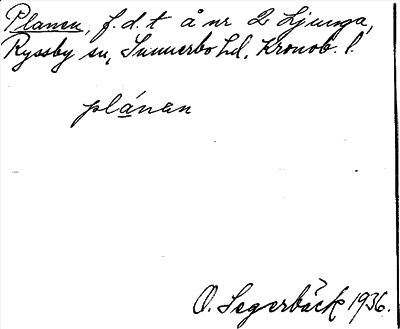 Planen, f.d. t å nr 2 Ljunga,
Ryssby sn, Sunnerbo hd, Kronob. l.
plánan
O. Segerbäck 1936.